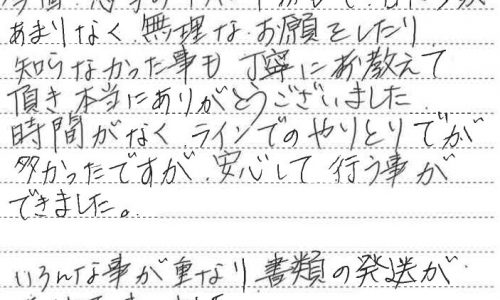 あまりなく、無理なお願をしたり
知らなかった事も丁寧にお教えて
頂き本当にありがとうございました。
時間がなく、ラインでのやりとりでが
多かったですが、安心して行う事が
できました。
いろんな事が重なり書類の発送が